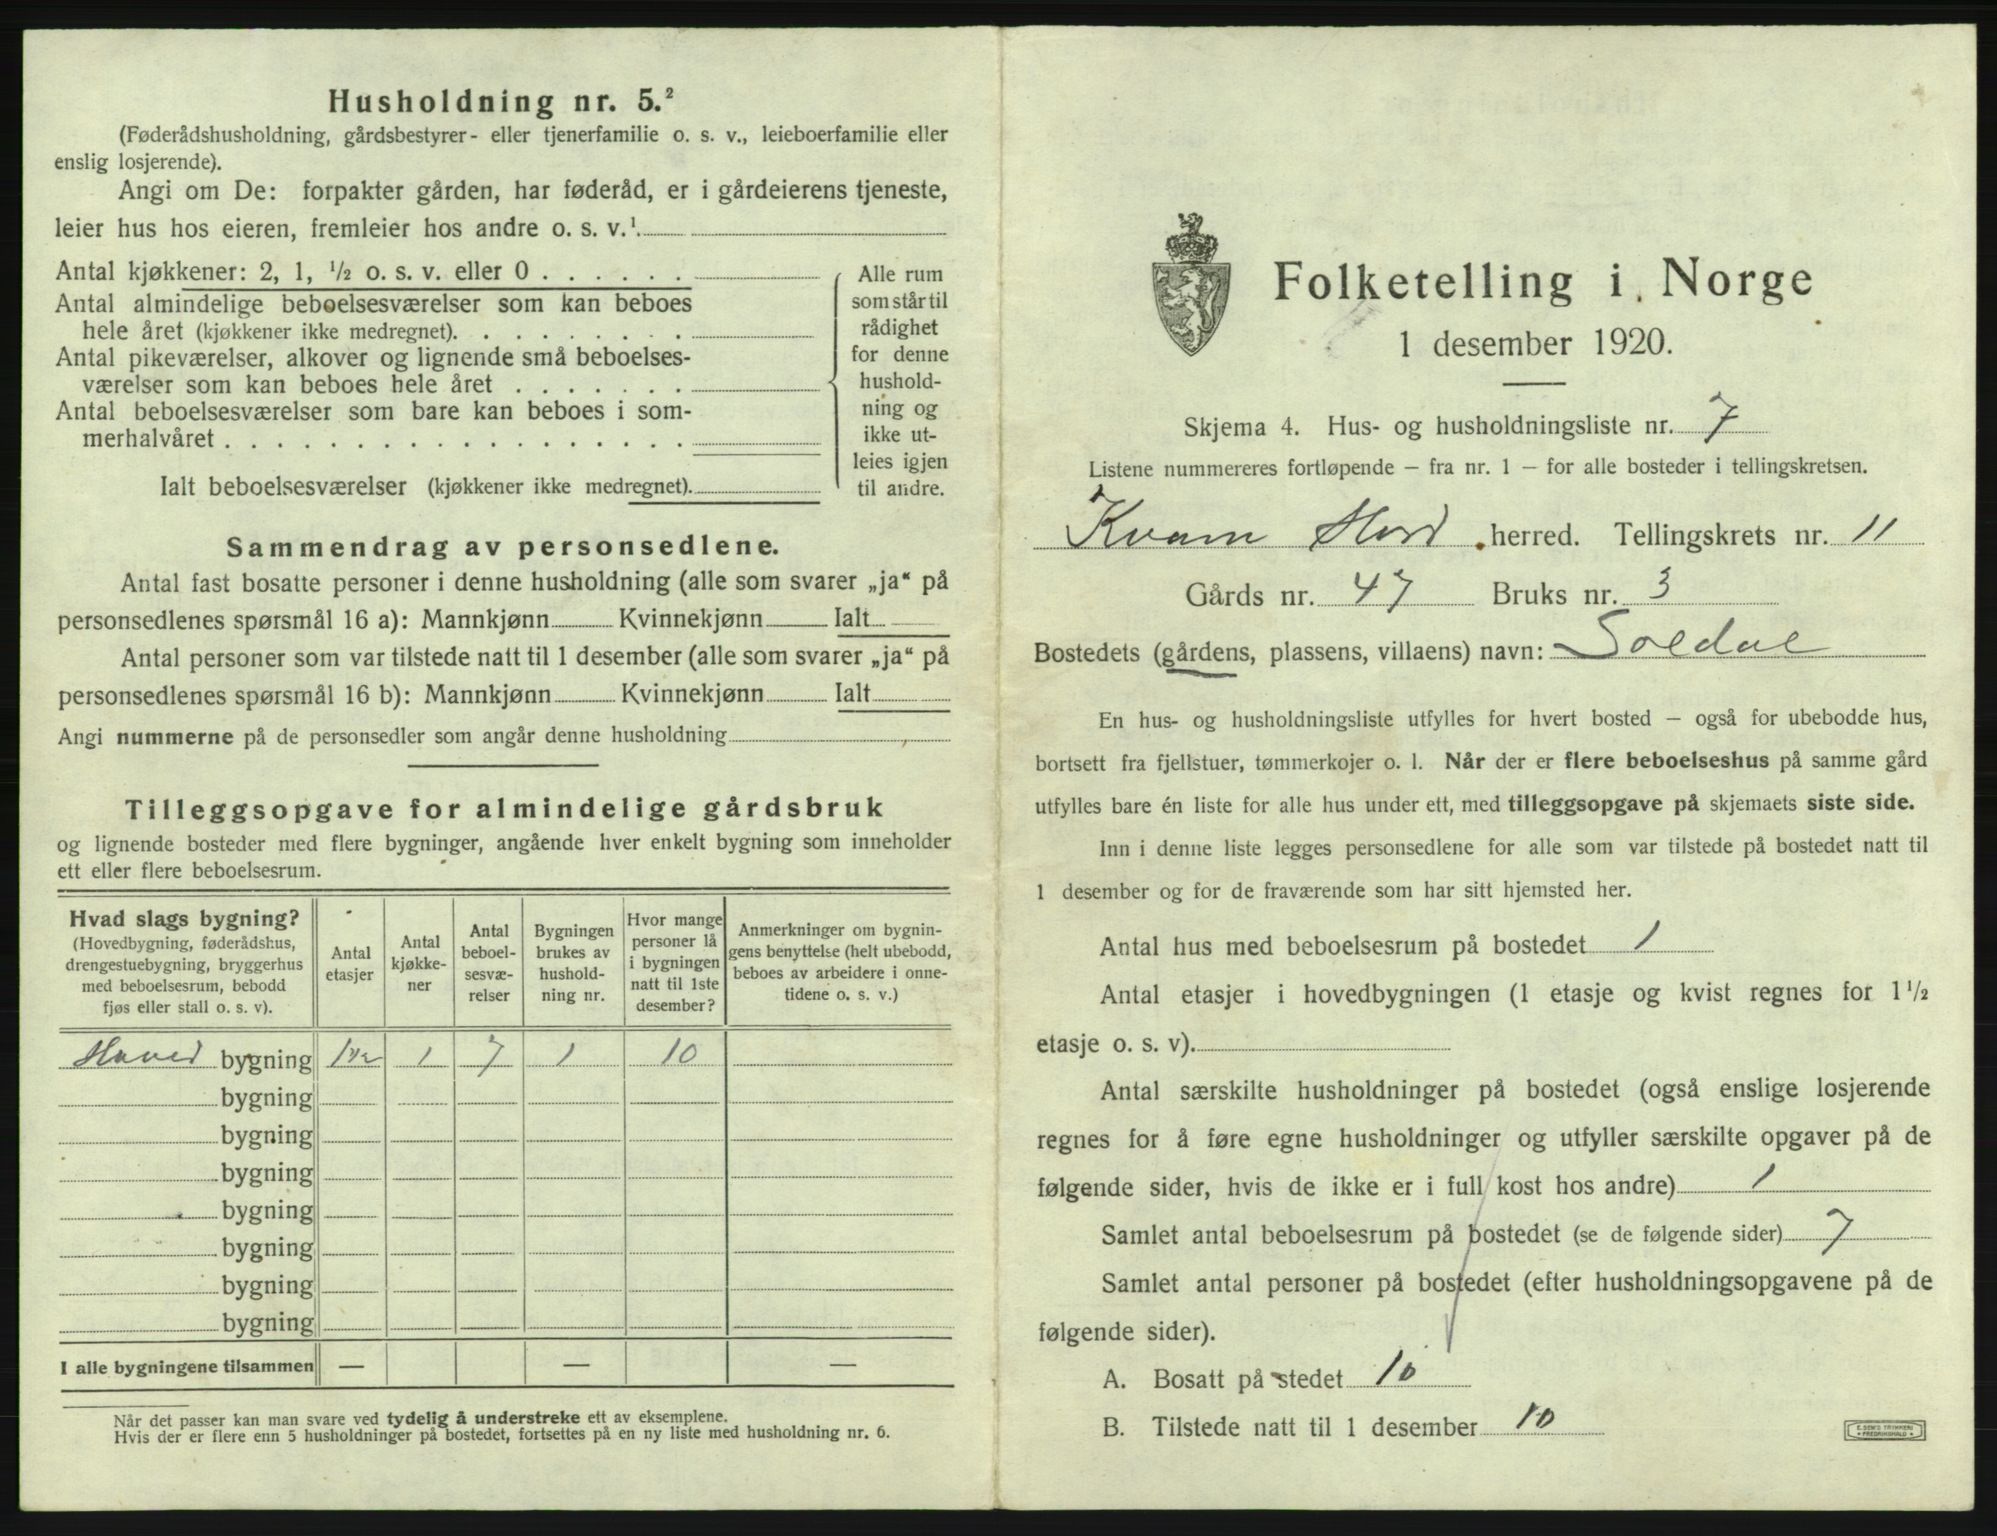 Husholdning nr. 5.²
(Føderådshusholdning, gårdsbestyrer- eller tjenerfamilie o. s. v., leieboerfamilie eller
enslig losjerende).
Angi om De: forpakter gården, har føderåd, er i gårdeierens tjeneste,
leier hus hos eieren, fremleier hos andre o. s. v.¹
Antal kjøkkener: 2, 1, ½ o. s. v. eller 0 . . . . . .
Antal almindelige beboelsesværelser som kan beboes
hele året (kjøkkener ikke medregnet). . . . . . . . .
Antal pikeværelser, alkover og lignende små beboelses-
værelser som kan beboes hele året . . . . . . .
Antal beboelsesværelser som bare kan beboes i som-
merhalvåret . . . . . . . . . . . . . . . . . .
Ialt beboelsesværelser (kjøkkener ikke medregnet).
Alle rum
som står til
rådighet
for denne
hushold-
ning og
ikke ut-
leies igjen
til andre.
Sammendrag av personsedlene.
Antal fast bosatte personer i denne husholdning (alle som svarer „ja“ på
personsedlenes spørsmål 16 a): Mannkjønn Kvinnekjønn Ialt
Antal personer som var tilstede natt til 1 desember (alle som svarer „ja“ på
personsedlenes spørsmål 16 b): Mannkjønn Kvinnekjønn Ialt
Angi nummerne på de personsedler som angår denne husholdning
Tilleggsopgave for almindelige gårdsbruk
og lignende bosteder med flere bygninger, angående hver enkelt bygning som inneholder
ett eller flere beboelsesrum.
Hvad slags bygning?
(Hovedbygning, føderådshus,
drengestuebygning, bryggerhus
med beboelsesrum, bebodd
fjøs eller stall o. s. v).
Antal
etasjer
Antal
kjøkke-
ner
Antal
beboel-
sesvæ-
relser
Bygningen
brukes av
hushold-
ning nr.
Hvor mange
personer lå
i bygningen
natt til 1ste
desember?
Anmerkninger om bygnin-
gens benyttelse (helt ubebodd,
beboes av arbeidere i onne-
tidene o. s. v.)
Hoved bygning 1 1/2 1 7 1 10
bygning
bygning
bygning
bygning
bygning
bygning
bygning
I alle bygningene tilsammen — — —
Når det passer kan man svare ved tydelig å understreke ett av eksemplene.
Hvis der er flere enn 5 husholdninger på bostedet, fortsettes på en ny liste med husholdning nr. 6.
Folketelling i Norge
1 desember 1920.
Skjema 4. Hus- og husholdningsliste nr. 7
Listene nummereres fortløpende — fra nr. 1 — for alle bosteder i tellingskretsen.
Kvam Hord herred. Tellingskrets nr. 11
Gårds nr. 47 Bruks nr. 3
Bostedets (gårdens, plassens, villaens) navn: Soldal
En hus- og husholdningsliste utfylles for hvert bosted — også for ubebodde hus,
bortsett fra fjellstuer, tømmerkojer o. l. Når der er flere beboelseshus på samme gård
utfylles bare én liste for alle hus under ett, med tilleggsopgave på skjemaets siste side.
Inn i denne liste legges personsedlene for alle som var tilstede på bostedet natt til
1 desember og for de fraværende som har sitt hjemsted her.
Antal hus med beboelsesrum på bostedet 1
Antal etasjer i hovedbygningen (1 etasje og kvist regnes for 1½
etasje o. s. v).
Antal særskilte husholdninger på bostedet (også enslige losjerende
regnes for å føre egne husholdninger og utfyller særskilte opgaver på de
følgende sider, hvis de ikke er i full kost hos andre) 1
Samlet antal beboelsesrum på bostedet (se de følgende sider) 7
Samlet antal personer på bostedet (efter husholdningsopgavene på de
følgende sider).
A. Bosatt på stedet 10
B. Tilstede natt til 1 desember 10